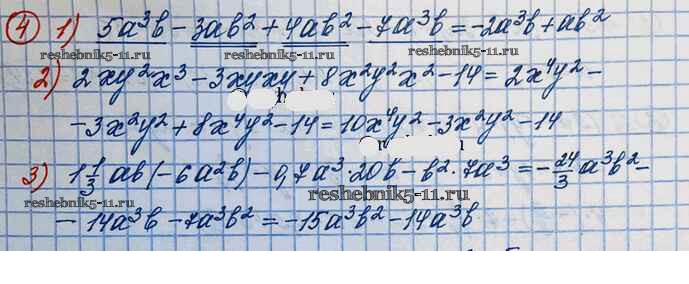 ④ 1) 5a³b - 3ab² + 4ab² - 7a³b = -2a³b + ab²
reshebnik5-11.ru reshebnik5-11.ru
2) 2xy²x³ - 3xyxy + 8x²y²x² - 14 = 2x⁴y² -
- 3x²y² + 8x⁴y² - 14 = 10x⁴y² - 3x²y² - 14
3) 1 1/3 ab(-6a²b) - 0,7a³·20b - b²·7a³ = -24/3 a³b² -
reshebnik5-11.ru reshebnik5-11.ru
- 14a³b - 7a³b² = -15a³b² - 14a³b
reshebnik5-11.ru